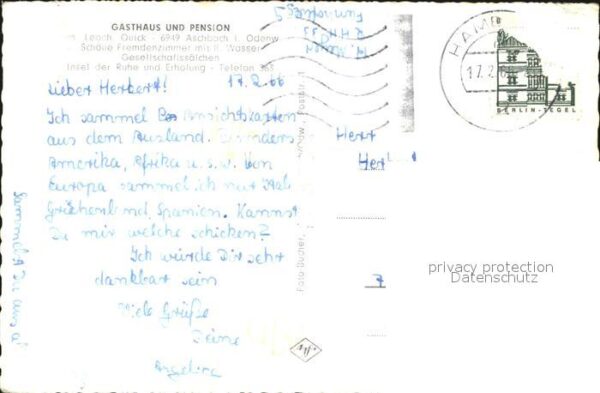 GASTHAUS UND PENSION
Leach. Quick - 6949 Aschbach i. Odenw.
Schöne Fremdenzimmer mit fl. Wasser
Gesellschaftssälchen
Insel der Ruhe und Erholung - Telefon 363
Lieber Herbert! 17.2.66
Ich sammel Ansichtskarten
aus dem Ausland. Besonders
Amerika, Afrika u.s.w. Von
Europa sammel ich nur Ital.
Griechenl. und Spanien. Kannst
Du mir welche schicken?
Ich würde Dir sehr
dankbar sein
Viele Grüße
Deine
Angelina
Sammelst Du auch
2 HH 55
Foto Bucher,
Herr
Herbert
7
HAMB
17.2.6
BERLIN-TEGEL
privacy protection
Datenschutz